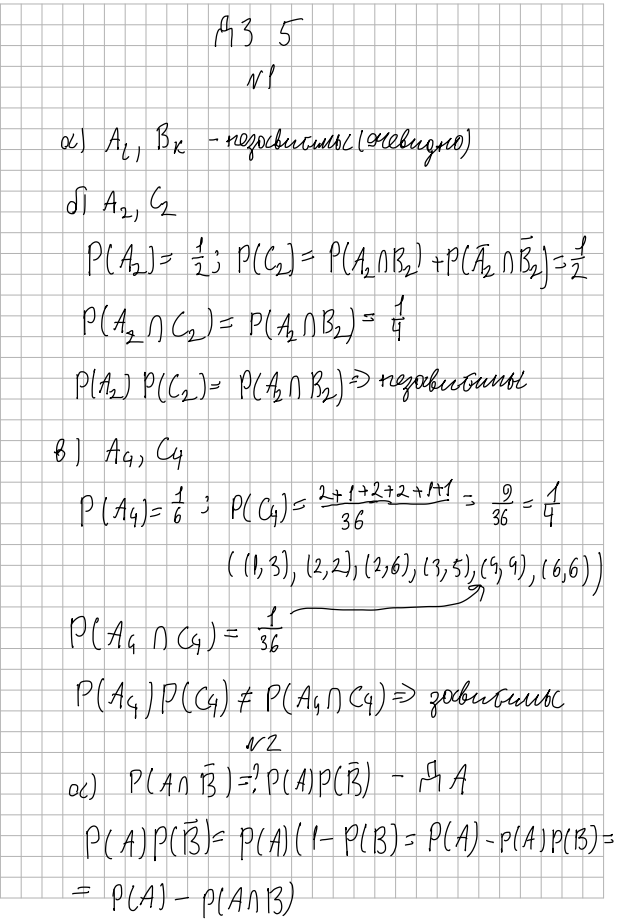 ДЗ 5
№1
а) A_i, B_k - независимы (очевидно)
б) A_2, C_2
P(A_2) = 1/2; P(C_2) = P(A_2∩B_2) + P(Ā_2∩B̄_2) = 1/2
P(A_2∩C_2) = P(A_2∩B_2) = 1/4
P(A_2) P(C_2) = P(A_2∩B_2) => независимы
в) A_4, C_4
P(A_4) = 1/6; P(C_4) = (2+1+2+2+1+1)/36 = 9/36 = 1/4
((1,3), (2,2), (2,6), (3,5), (4,4), (6,6))
P(A_4∩C_4) = 1/36
P(A_4)P(C_4) ≠ P(A_4∩C_4) => зависимы
№2
а) P(A∩B̄) =? P(A)P(B̄) - ДА
P(A)P(B̄) = P(A)(1-P(B) = P(A)-P(A)P(B) =
= P(A) - P(A∩B)